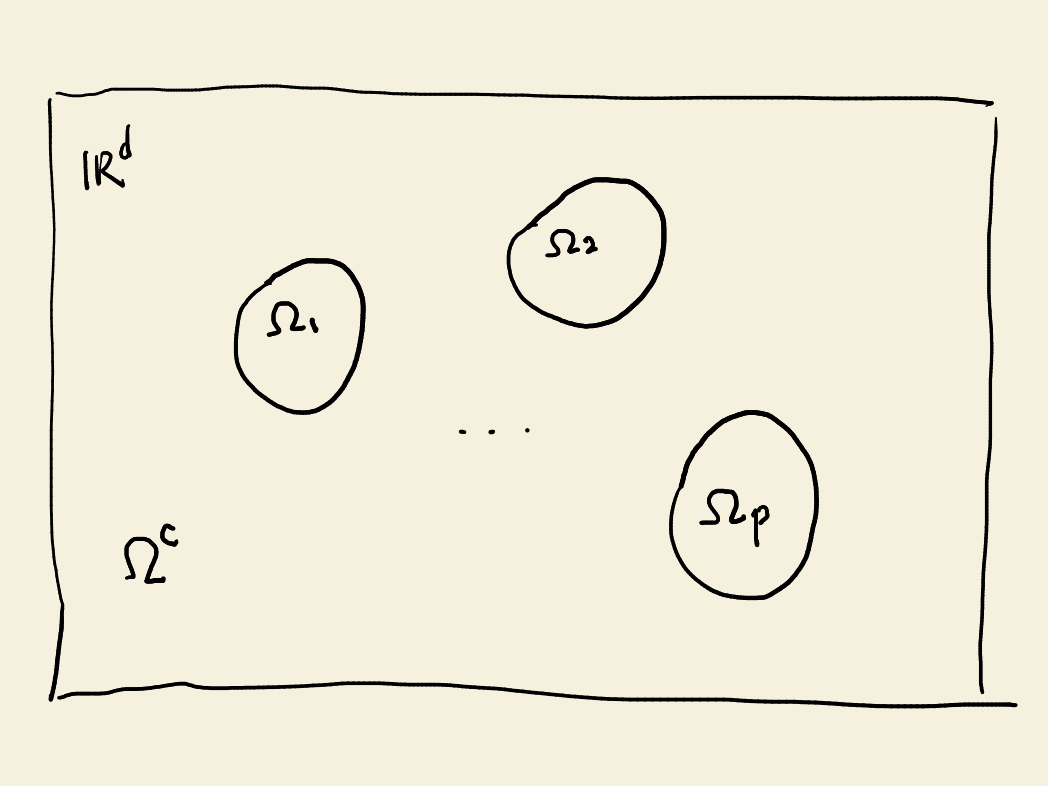 ℝᵈ
Ω₂
Ω₁
. . .
Ωₚ
Ωᶜ